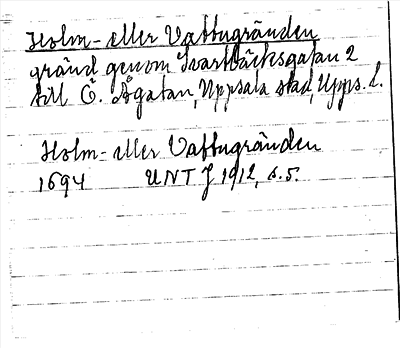 Holm- eller Vattugränden
gränd genom Svartbäcksgatan 2
till Ö. Ågatan, Uppsala stad, Upps. l.
Holm- eller Vattugränden
1694 UNT J 1912, s. 5.